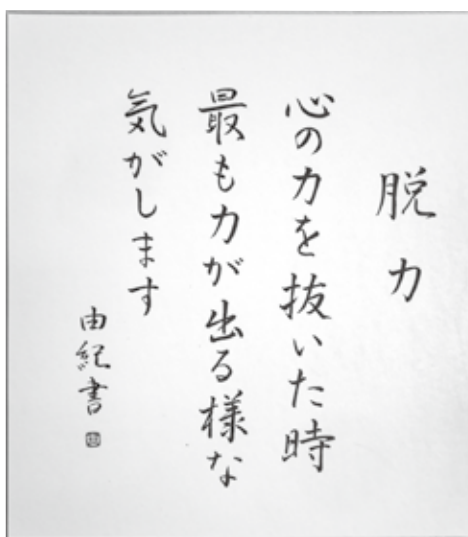 脱力
心の力を抜いた時
最も力が出る様な
気がします
由紀書